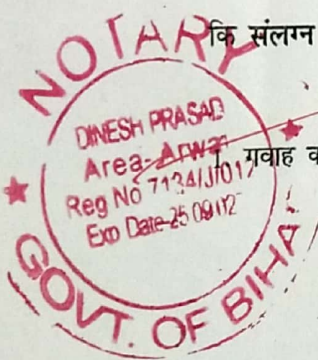 कि संलग्न
NOTARY
DINESH PRASAD
Area-Arwal
गवाह
Reg No 7134/J/012
Exp Date-25 09/12
GOVT. OF BIHA